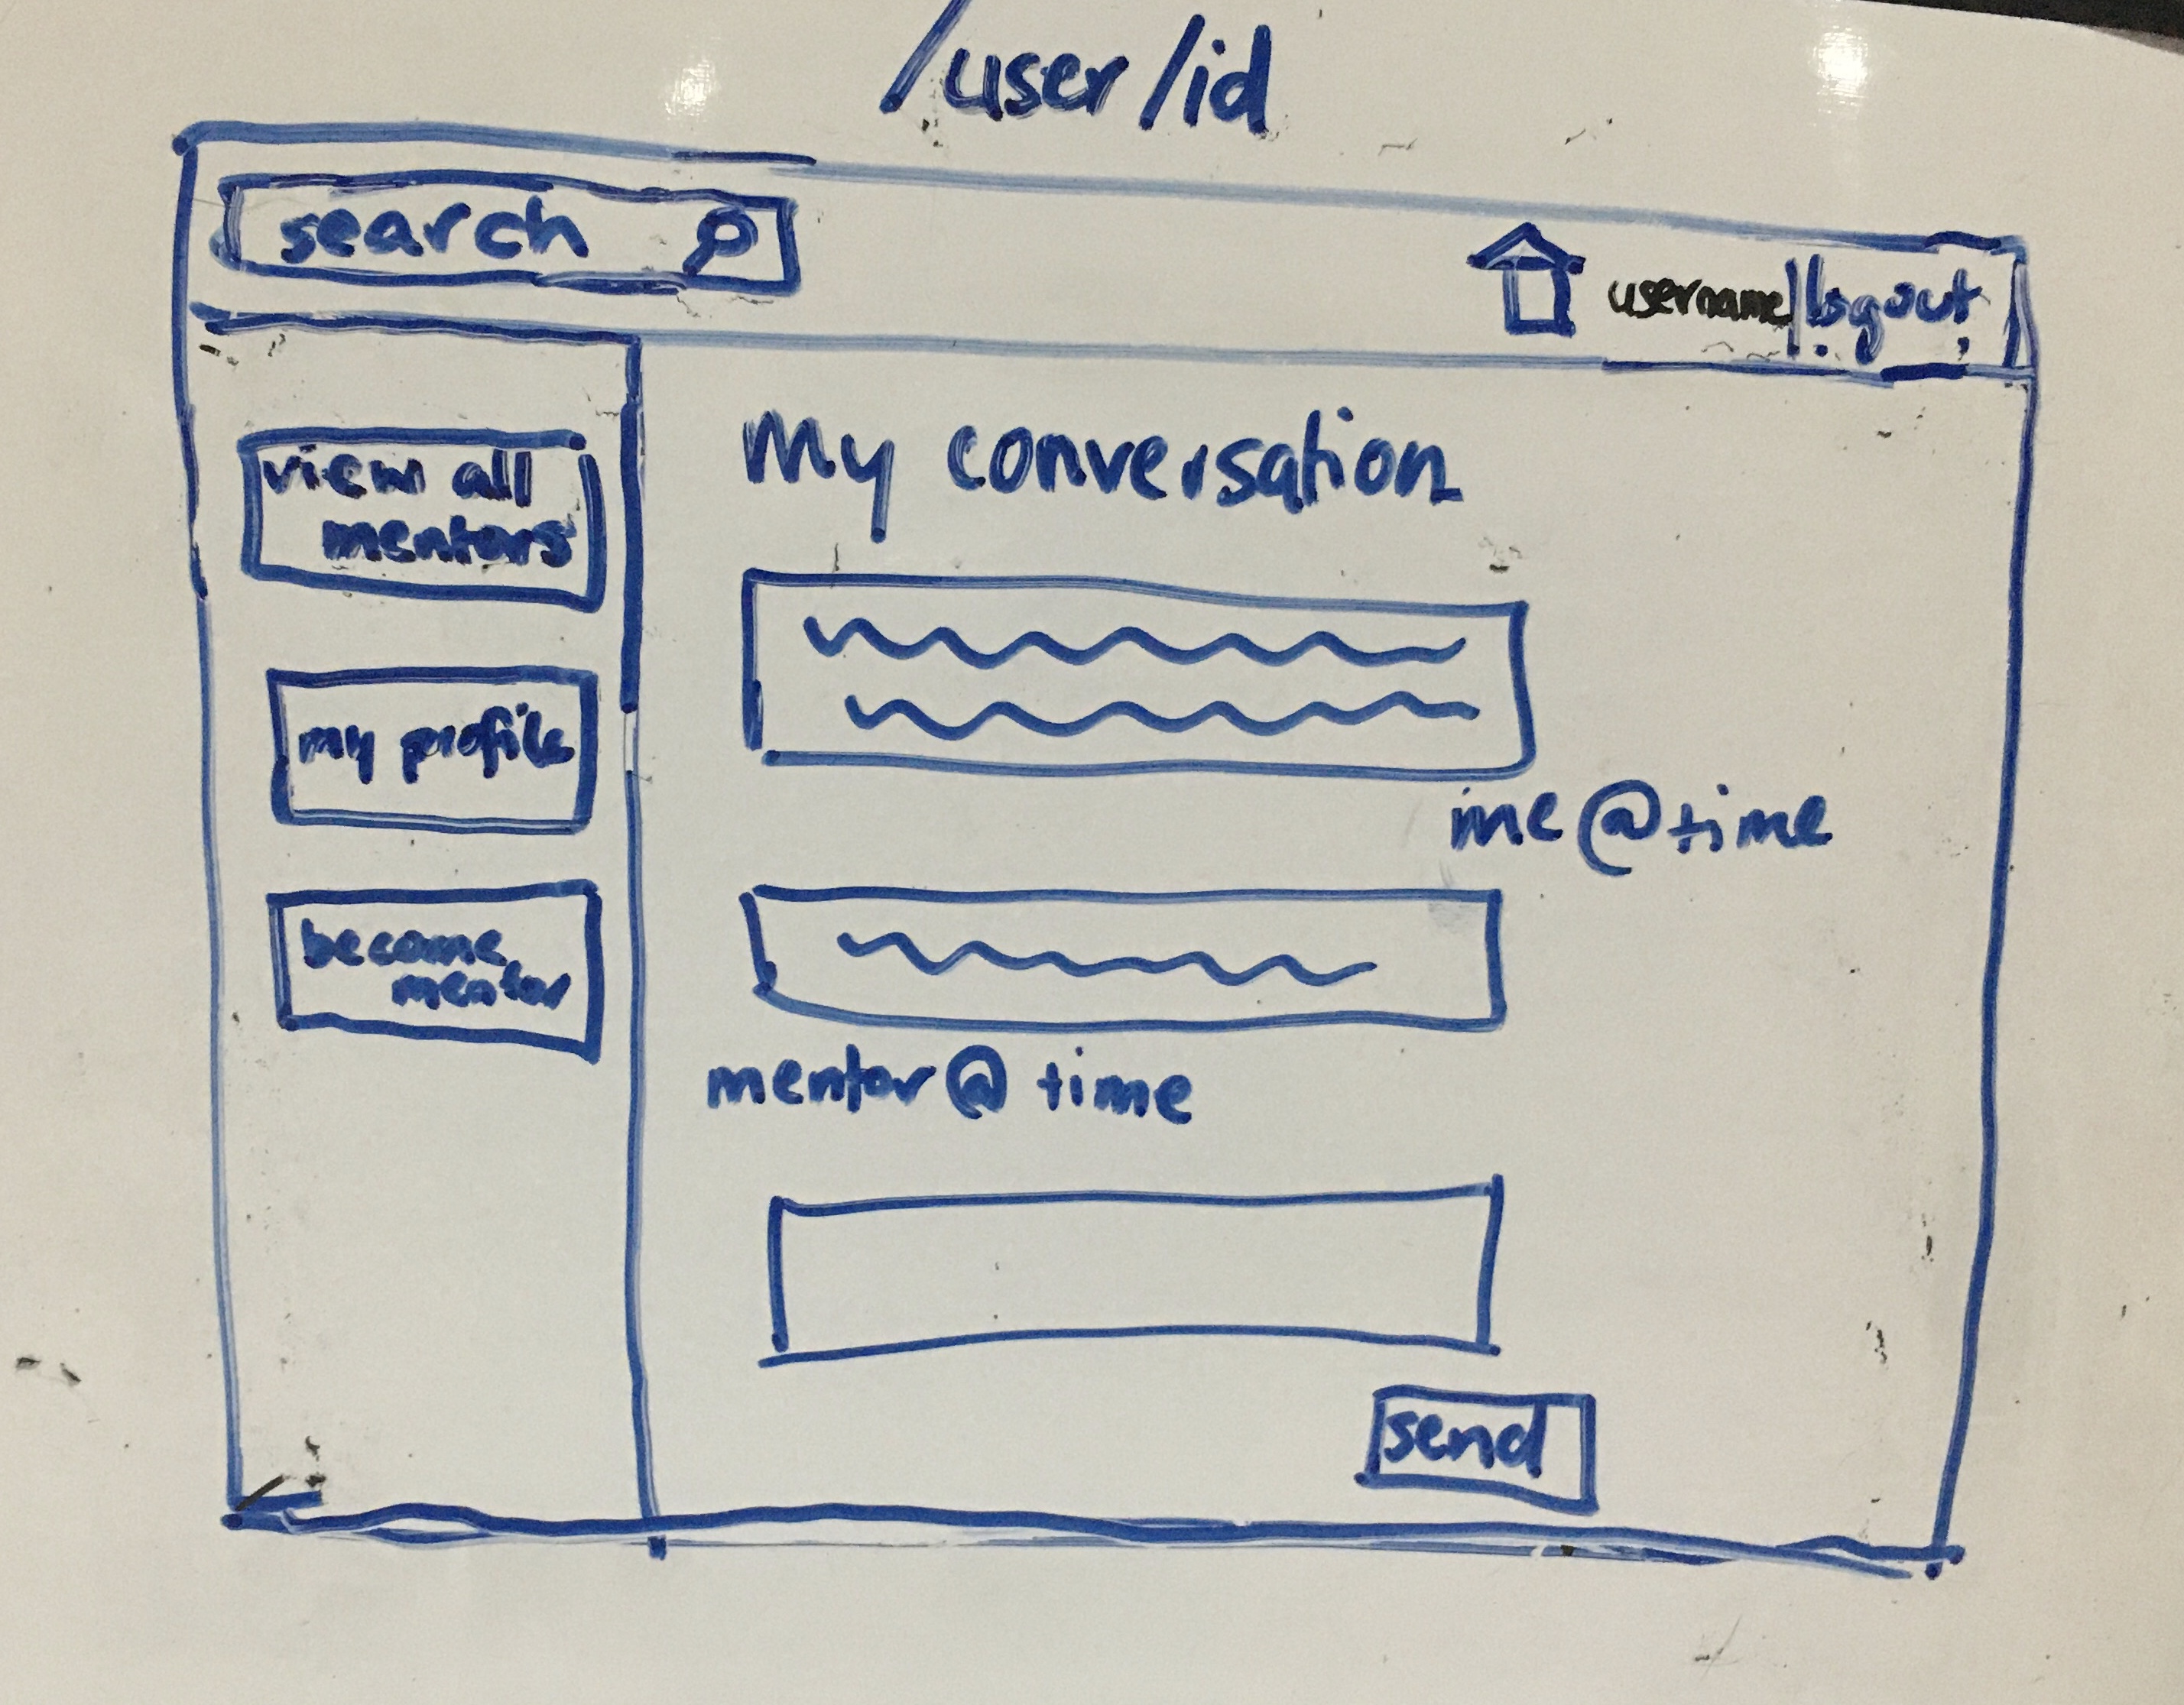 /user/id
search
username|logout
view all
mentors
my profile
become
mentor
My conversation
me@time
mentor@ time
send